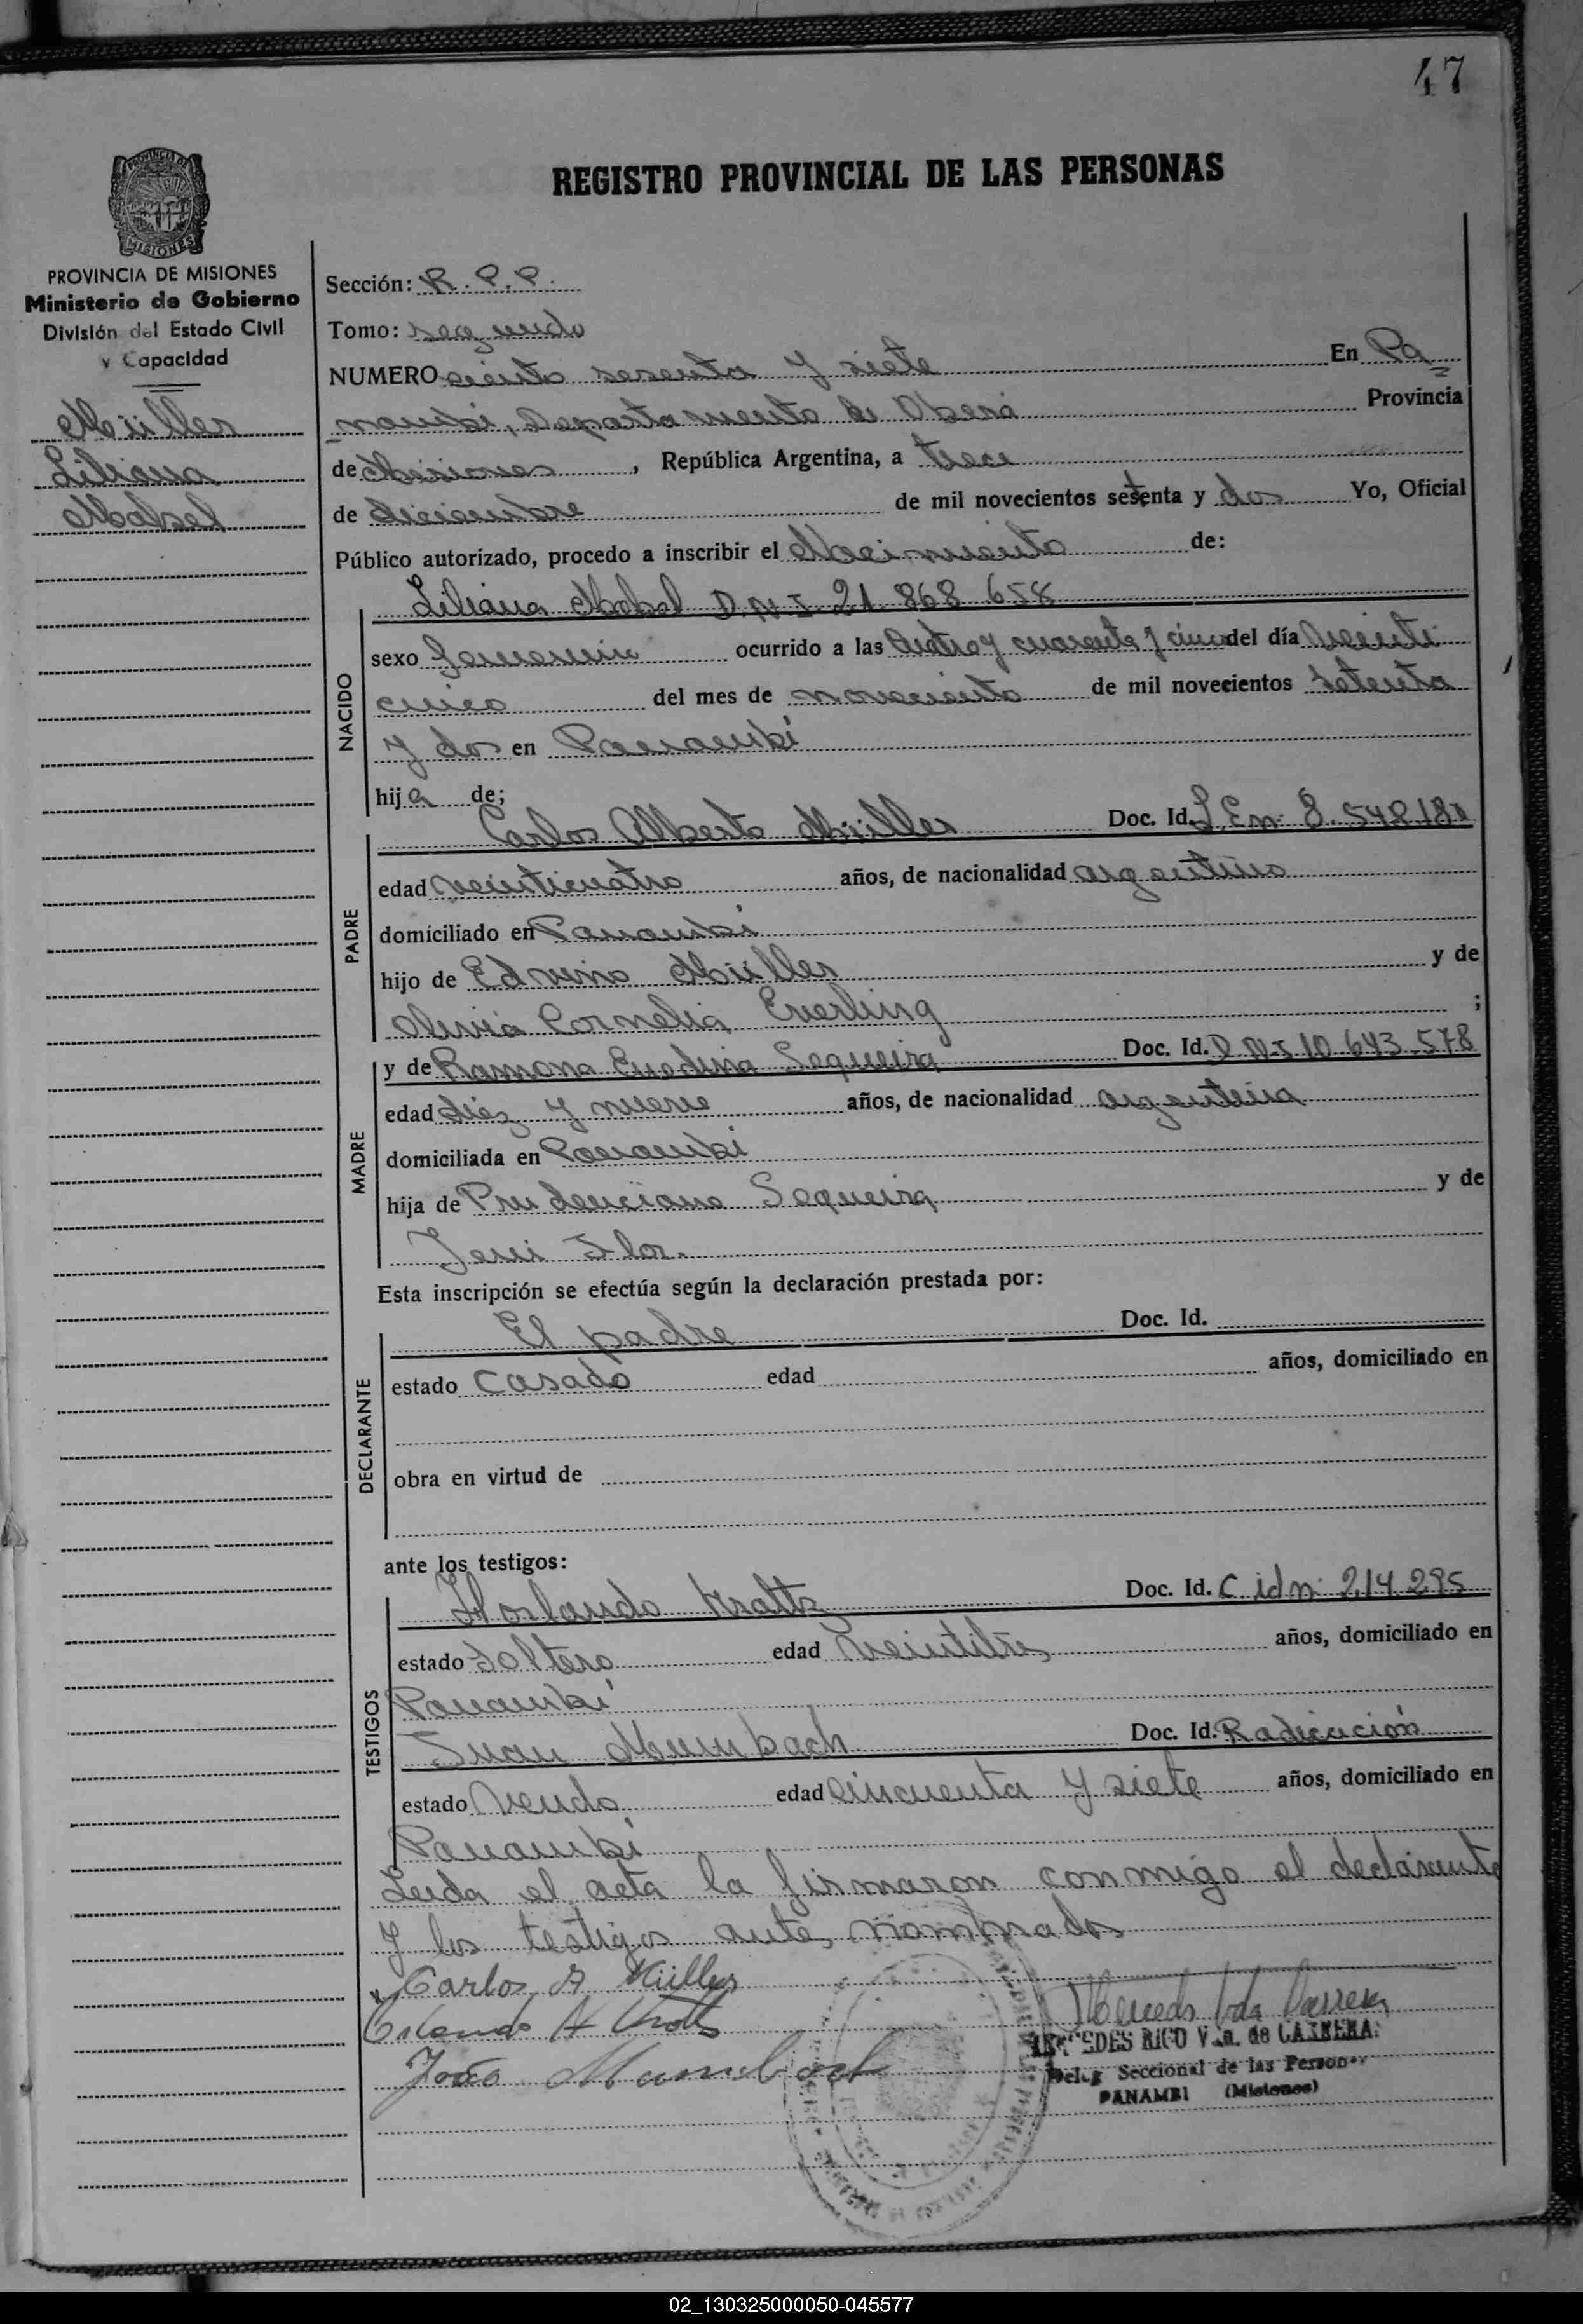 47
REGISTRO PROVINCIAL DE LAS PERSONAS
PROVINCIA DE
MISIONES
PROVINCIA DE MISIONES
Ministerio de Gobierno
División del Estado Civil
y Capacidad
Müller
Liliana
Mabel
Sección: R. P. P.
Tomo: segundo
NUMERO ciento sesenta y siete En Pa
nambí, Departamento de Oberá Provincia
de Misiones, República Argentina, a trece
de diciembre de mil novecientos setenta y dos Yo, Oficial
Público autorizado, procedo a inscribir el Nacimiento de:
NACIDO
Liliana Mabel D.N.I. 21.868.658
sexo femenino ocurrido a las cuatro y cuarenta y cinco del día veinti
cinco del mes de noviembre de mil novecientos setenta
y dos en Panambí
hija de;
PADRE
Carlos Alberto Müller Doc. Id. L.E.n: 8.548.181
edad veinticuatro años, de nacionalidad argentino
domiciliado en Panambí
hijo de Edvino Müller y de
Cornelia Everling ;
MADRE
y de Ramona Sequeira Doc. Id. D.N.I 10.643.578
edad diez y nueve años, de nacionalidad argentina
domiciliada en Panambi
hija de Prudenciano Sequeira y de
Flor.
Esta inscripción se efectúa según la declaración prestada por:
DECLARANTE
El padre Doc. Id.
estado casado edad años, domiciliado en
obra en virtud de
ante los testigos:
TESTIGOS
Horlando Kratts Doc. Id. C. idn: 214.295
estado soltero edad veintitres años, domiciliado en
Panambí
Juan Mumbach Doc. Id. Radicación
estado viudo edad cincuenta y siete años, domiciliado en
Panambí
Leida el acta la firmaron conmigo el declarante
y los testigos antes nombrados
Carlos A Müller
João Mumbach
MERCEDES RICO V.da. de CARRERA
Deleg Seccional de las Personas
PANAMBI (Misiones)
02_130325000050-045577